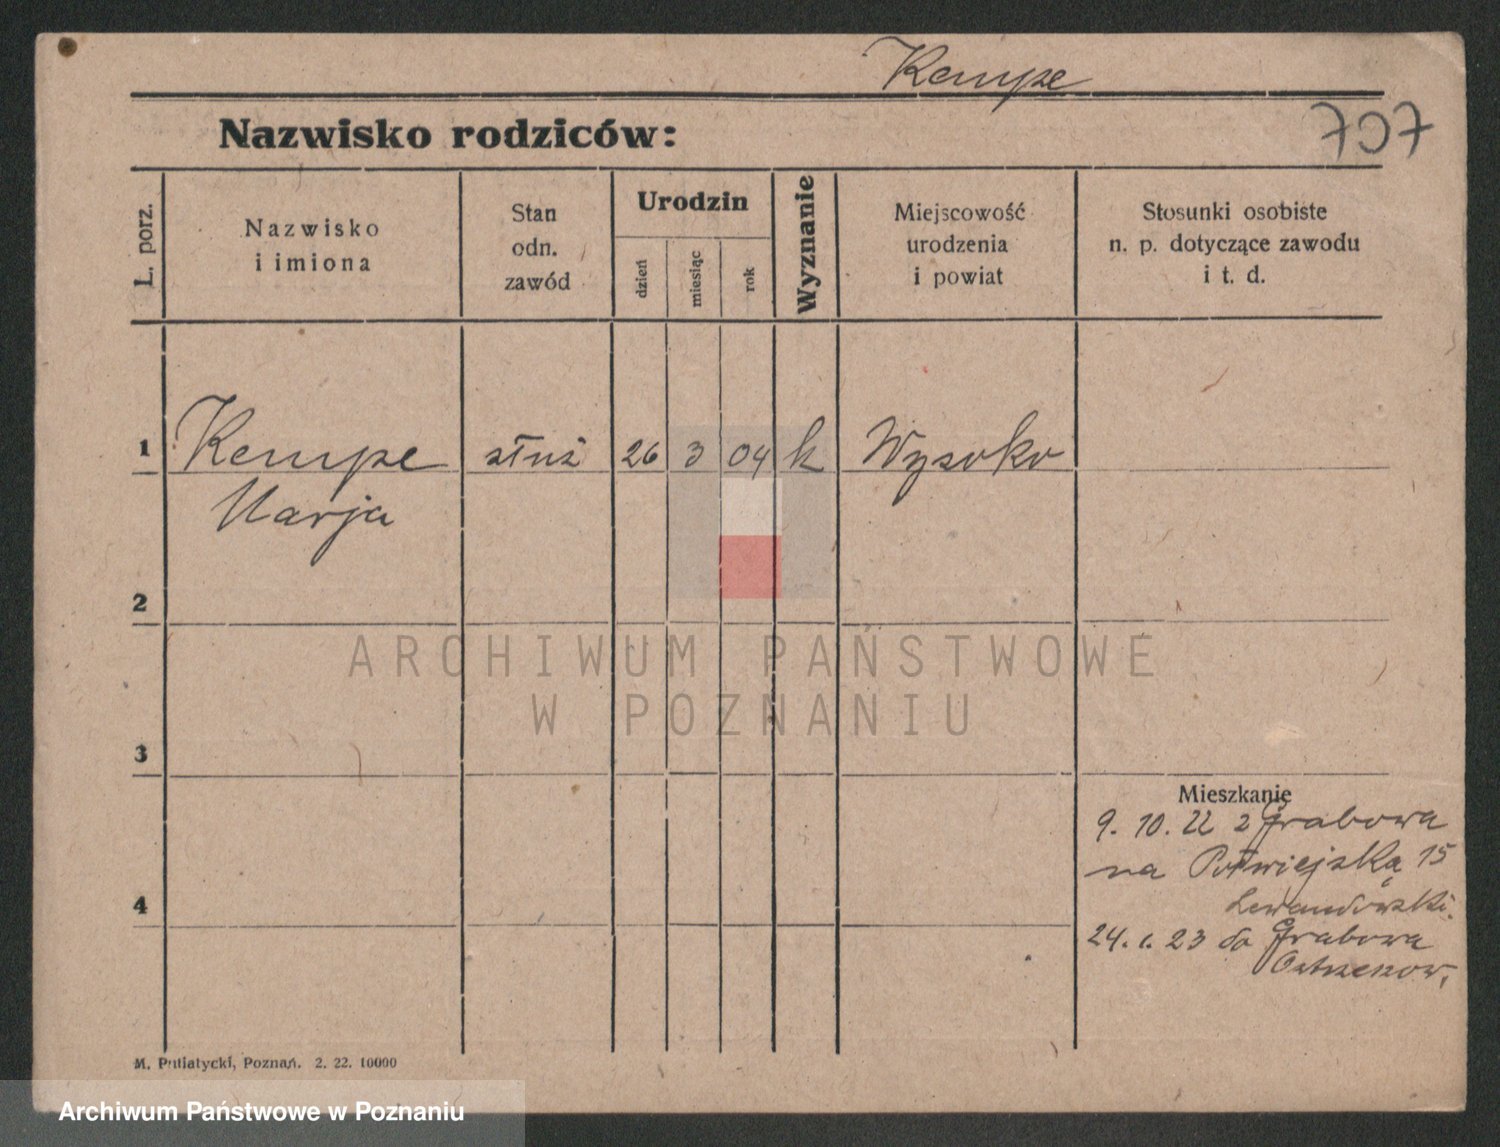 Kempe
707
Nazwisko rodziców:
L. porz.
Nazwisko
i imiona
Stan
odn.
zawód
Urodzin
dzień
miesiąc
rok
Wyznanie
Miejscowość
urodzenia
i powiat
Stosunki osobiste
n. p. dotyczące zawodu
i t. d.
1 Kempe służ 26 3 04 k Wysoko
Marja
2
ARCHIWUM PAŃSTWOWE
W POZNANIU
3
Mieszkanie
9. 10. 22 z Grabowa
na Półwiejską 15
4
Lewandowski.
24. 1. 23 do Grabowa
M. Putiatycki, Poznań. 2. 22. 10000
Archiwum Państwowe w Poznaniu